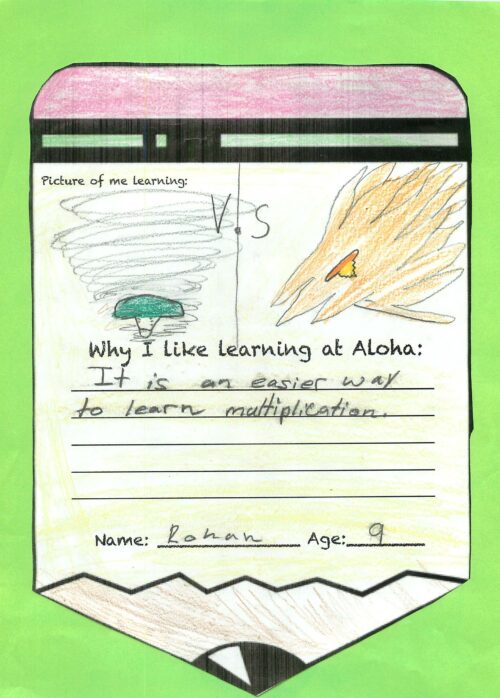 Picture of me learning:
V.S
Why I like learning at Aloha:
It is an easier way
to learn multiplication.
Name: Rohan Age: 9